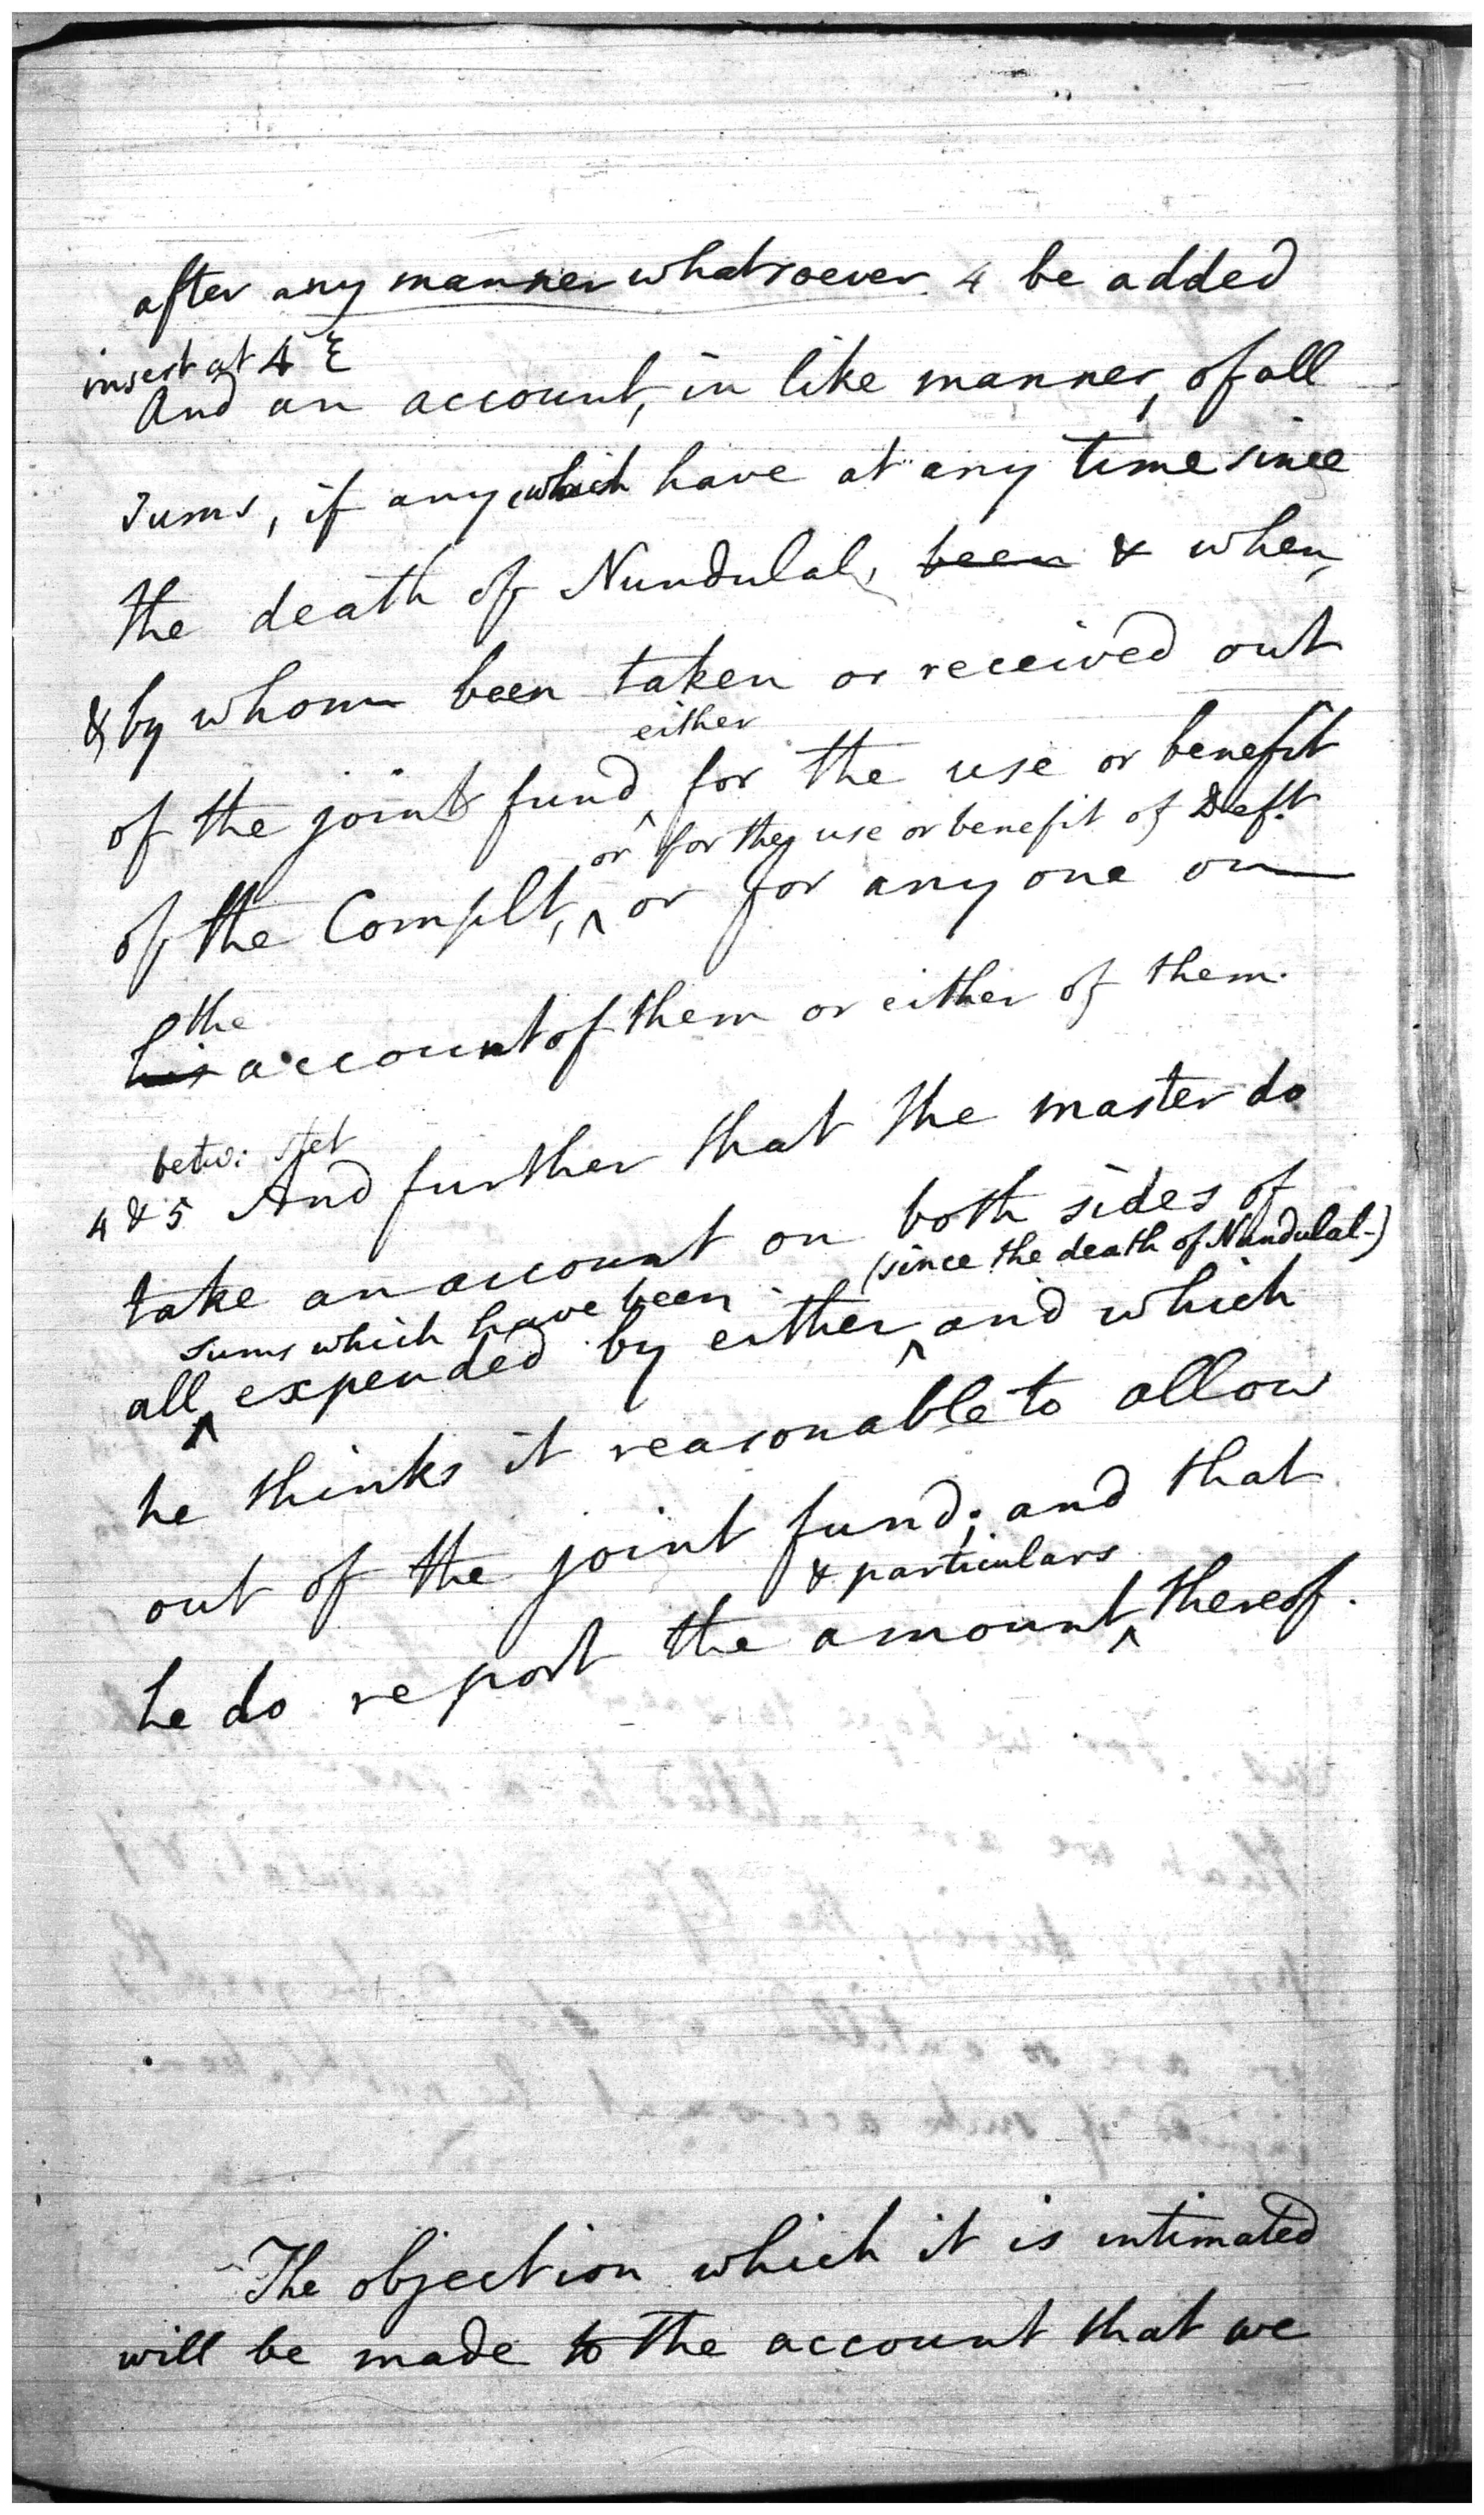 after any manner whatsoever 4 be added
insert at 4
And an account, in like manner, of all
sums, if any which have at any time since
the death of Nundulal, been & when,
& by whom been taken or received out
either
of the joint fund, for the use or benefit
or for they use or benefit of Deft
of the Complt, ^ or for any one on
the
his account of them or either of them.
betw: stet
4 & 5 And further that the master do
take an account on both sides of
sums which have been (since the death of Nundulal-)
all ^ expended by either ^ and which
he thinks it reasonable to allow
out of the joint fund; and that
& particulars
he do report the amount ^ thereof.
The objection which it is intimated
will be made to the account that we